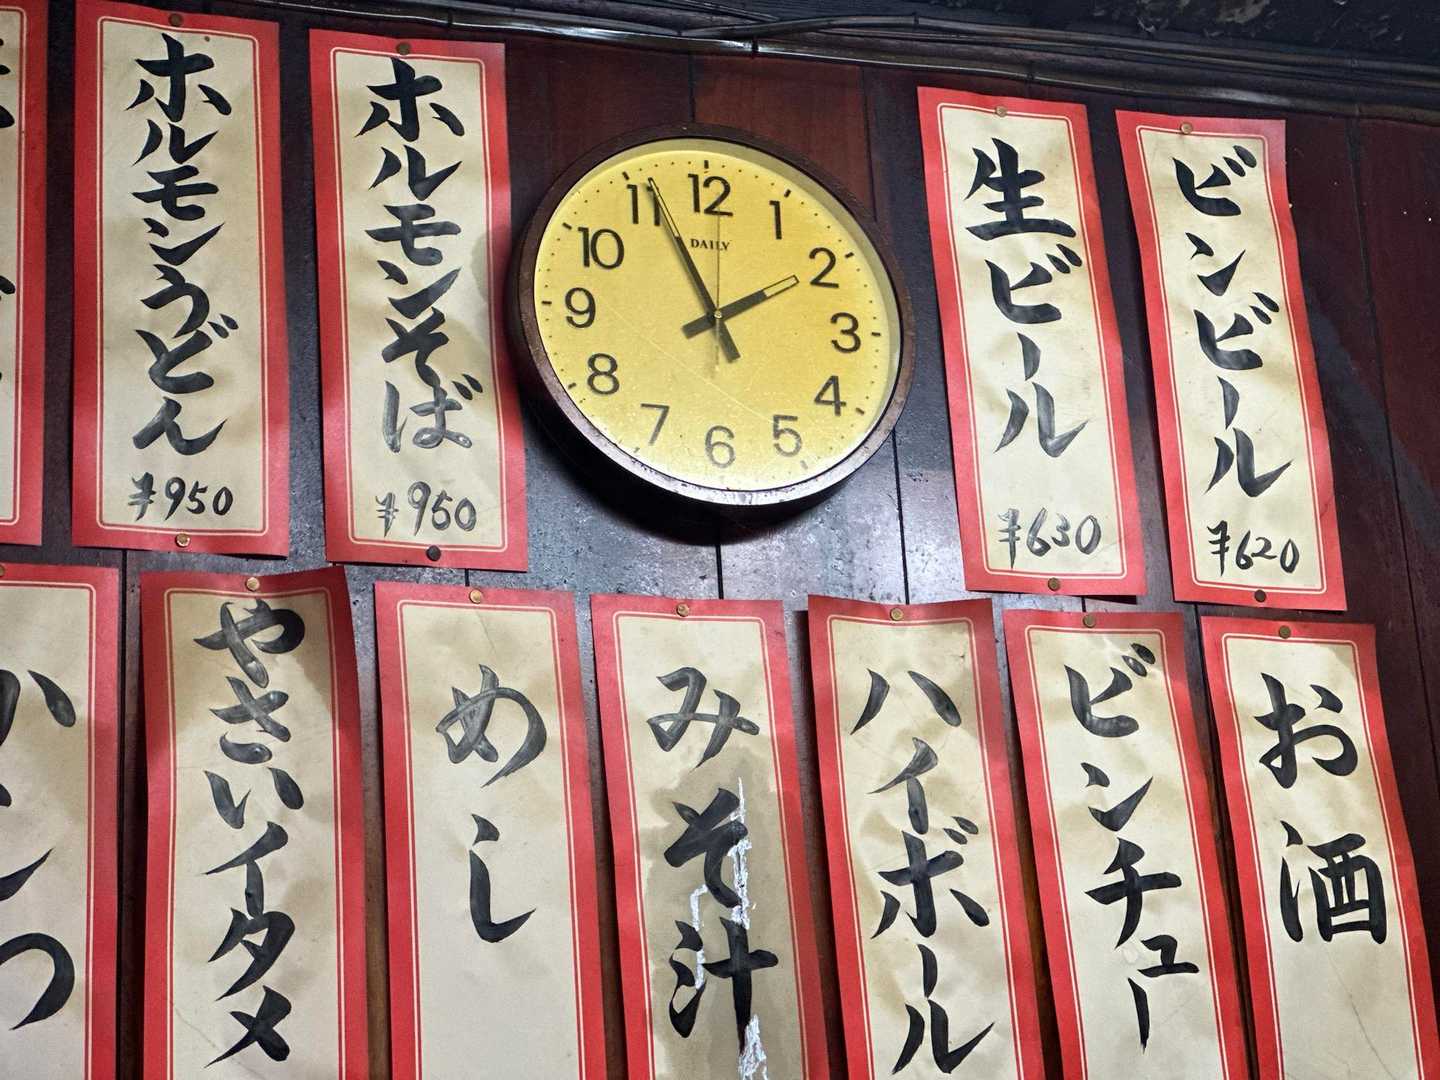 ホルモンうどん
¥950
ホルモンそば
¥950
11
12
1
10
2
DAILY
9
3
8
4
7
6
5
生ビール
¥630
ビンビール
¥620
やさいイタメ
めし
みそ汁
ハイボール
ビンチュー
お酒